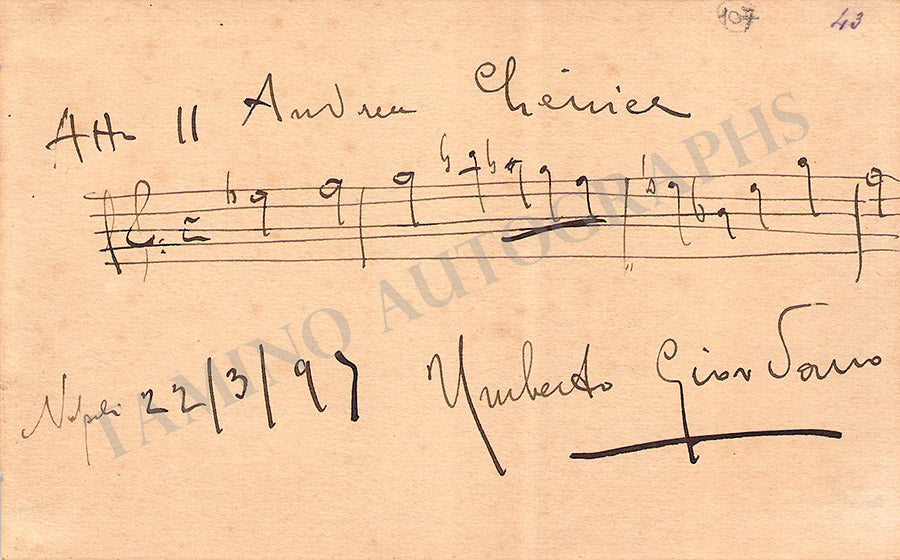 107 43
Atto II Andrea Chénier
Napoli 22/3/97 Umberto Giordano
TAMINO AUTOGRAPHS